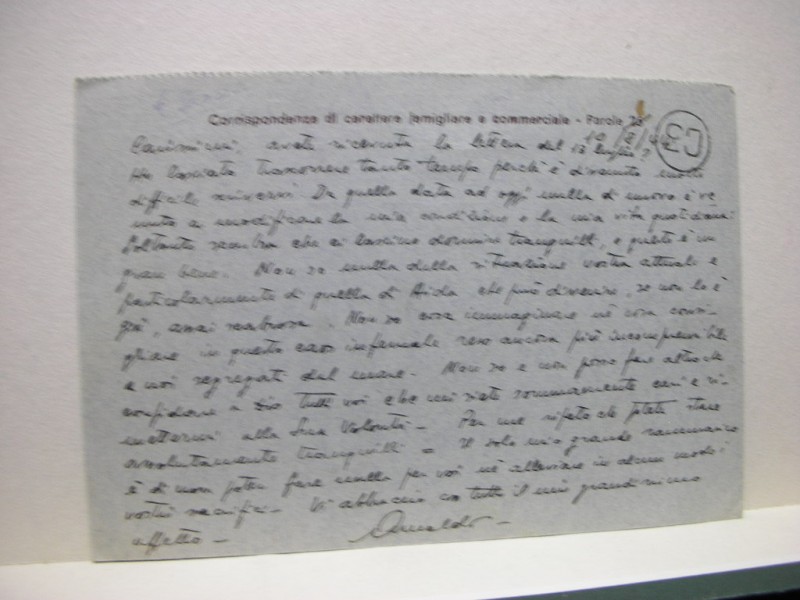 Corrispondenza di carattere famigliare e commerciale - Parole
C3
Carissimi, avete ricevuta la lettera del 13 luglio?
Ho lasciato trascorrere tanto tempo perché è divenuto molto
difficile scriversi. Da quella data ad oggi nulla di nuovo è ve
nuto a modificare la mia condizione e la mia vita quotidiana.
Soltanto sembra che ci lascino dormire tranquilli, e questo è un
gran bene. Non so nulla della situazione vostra attuale e
particolarmente di quella di Aida che può divenire, se non lo è
già, assai scabrosa. Non so cosa immaginare né cosa consi-
gliare in questo caos infernale reso ancora più incomprensibile
a noi segregati dal mare. Non so e non posso fare altro che
confidare a Dio tutti voi che mi siete sommamente cari e ri-
mettermi alla Sua Volontà - Per me ripeto che potete stare
assolutamente tranquilli = Il solo mio grande rammarico
è di non poter fare nulla per voi né alleviare in alcun modo i
vostri sacrifici - Vi abbraccio con tutto il mio grandissimo
affetto -
Arnaldo -